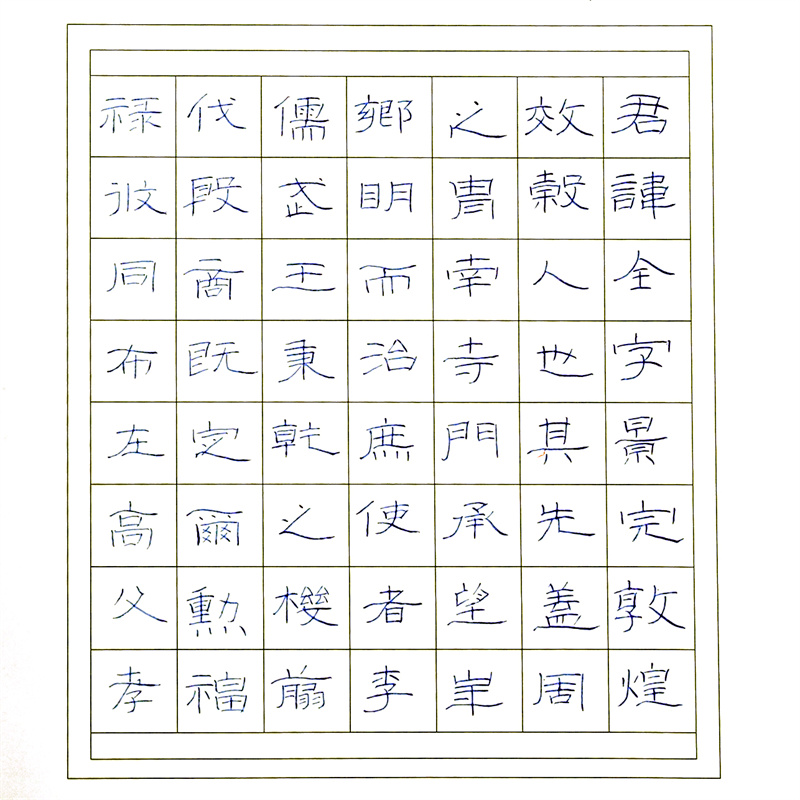 君諱全字景完敦煌
效穀人也其先蓋周
之胄幸寺門承望
鄉明而治庶使者李
儒武王秉乾之機翦
伐殷商既定爾勳福
祿攸同布左高父孝